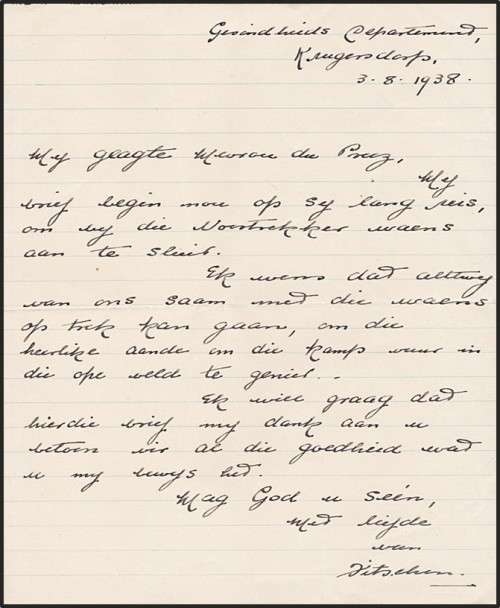 Gesondheids Departement,
Krugersdorp,
3-8-1938.
My geagte Mevrou du Preez,
My
brief begin nou op sy lang reis,
om by die Voortrekker waens
aan te sluit.
Ek wens dat altwey
van ons saam met die waens
op trek kan gaan, om die
heerlike aande om die kamp vuur in
die ope veld te geniet..
Ek will graag dat
hierdie brief my dank aan u
betoon vir al die goedheid wat
u my bewys het.
Mag God u seën,
Met liefde
van